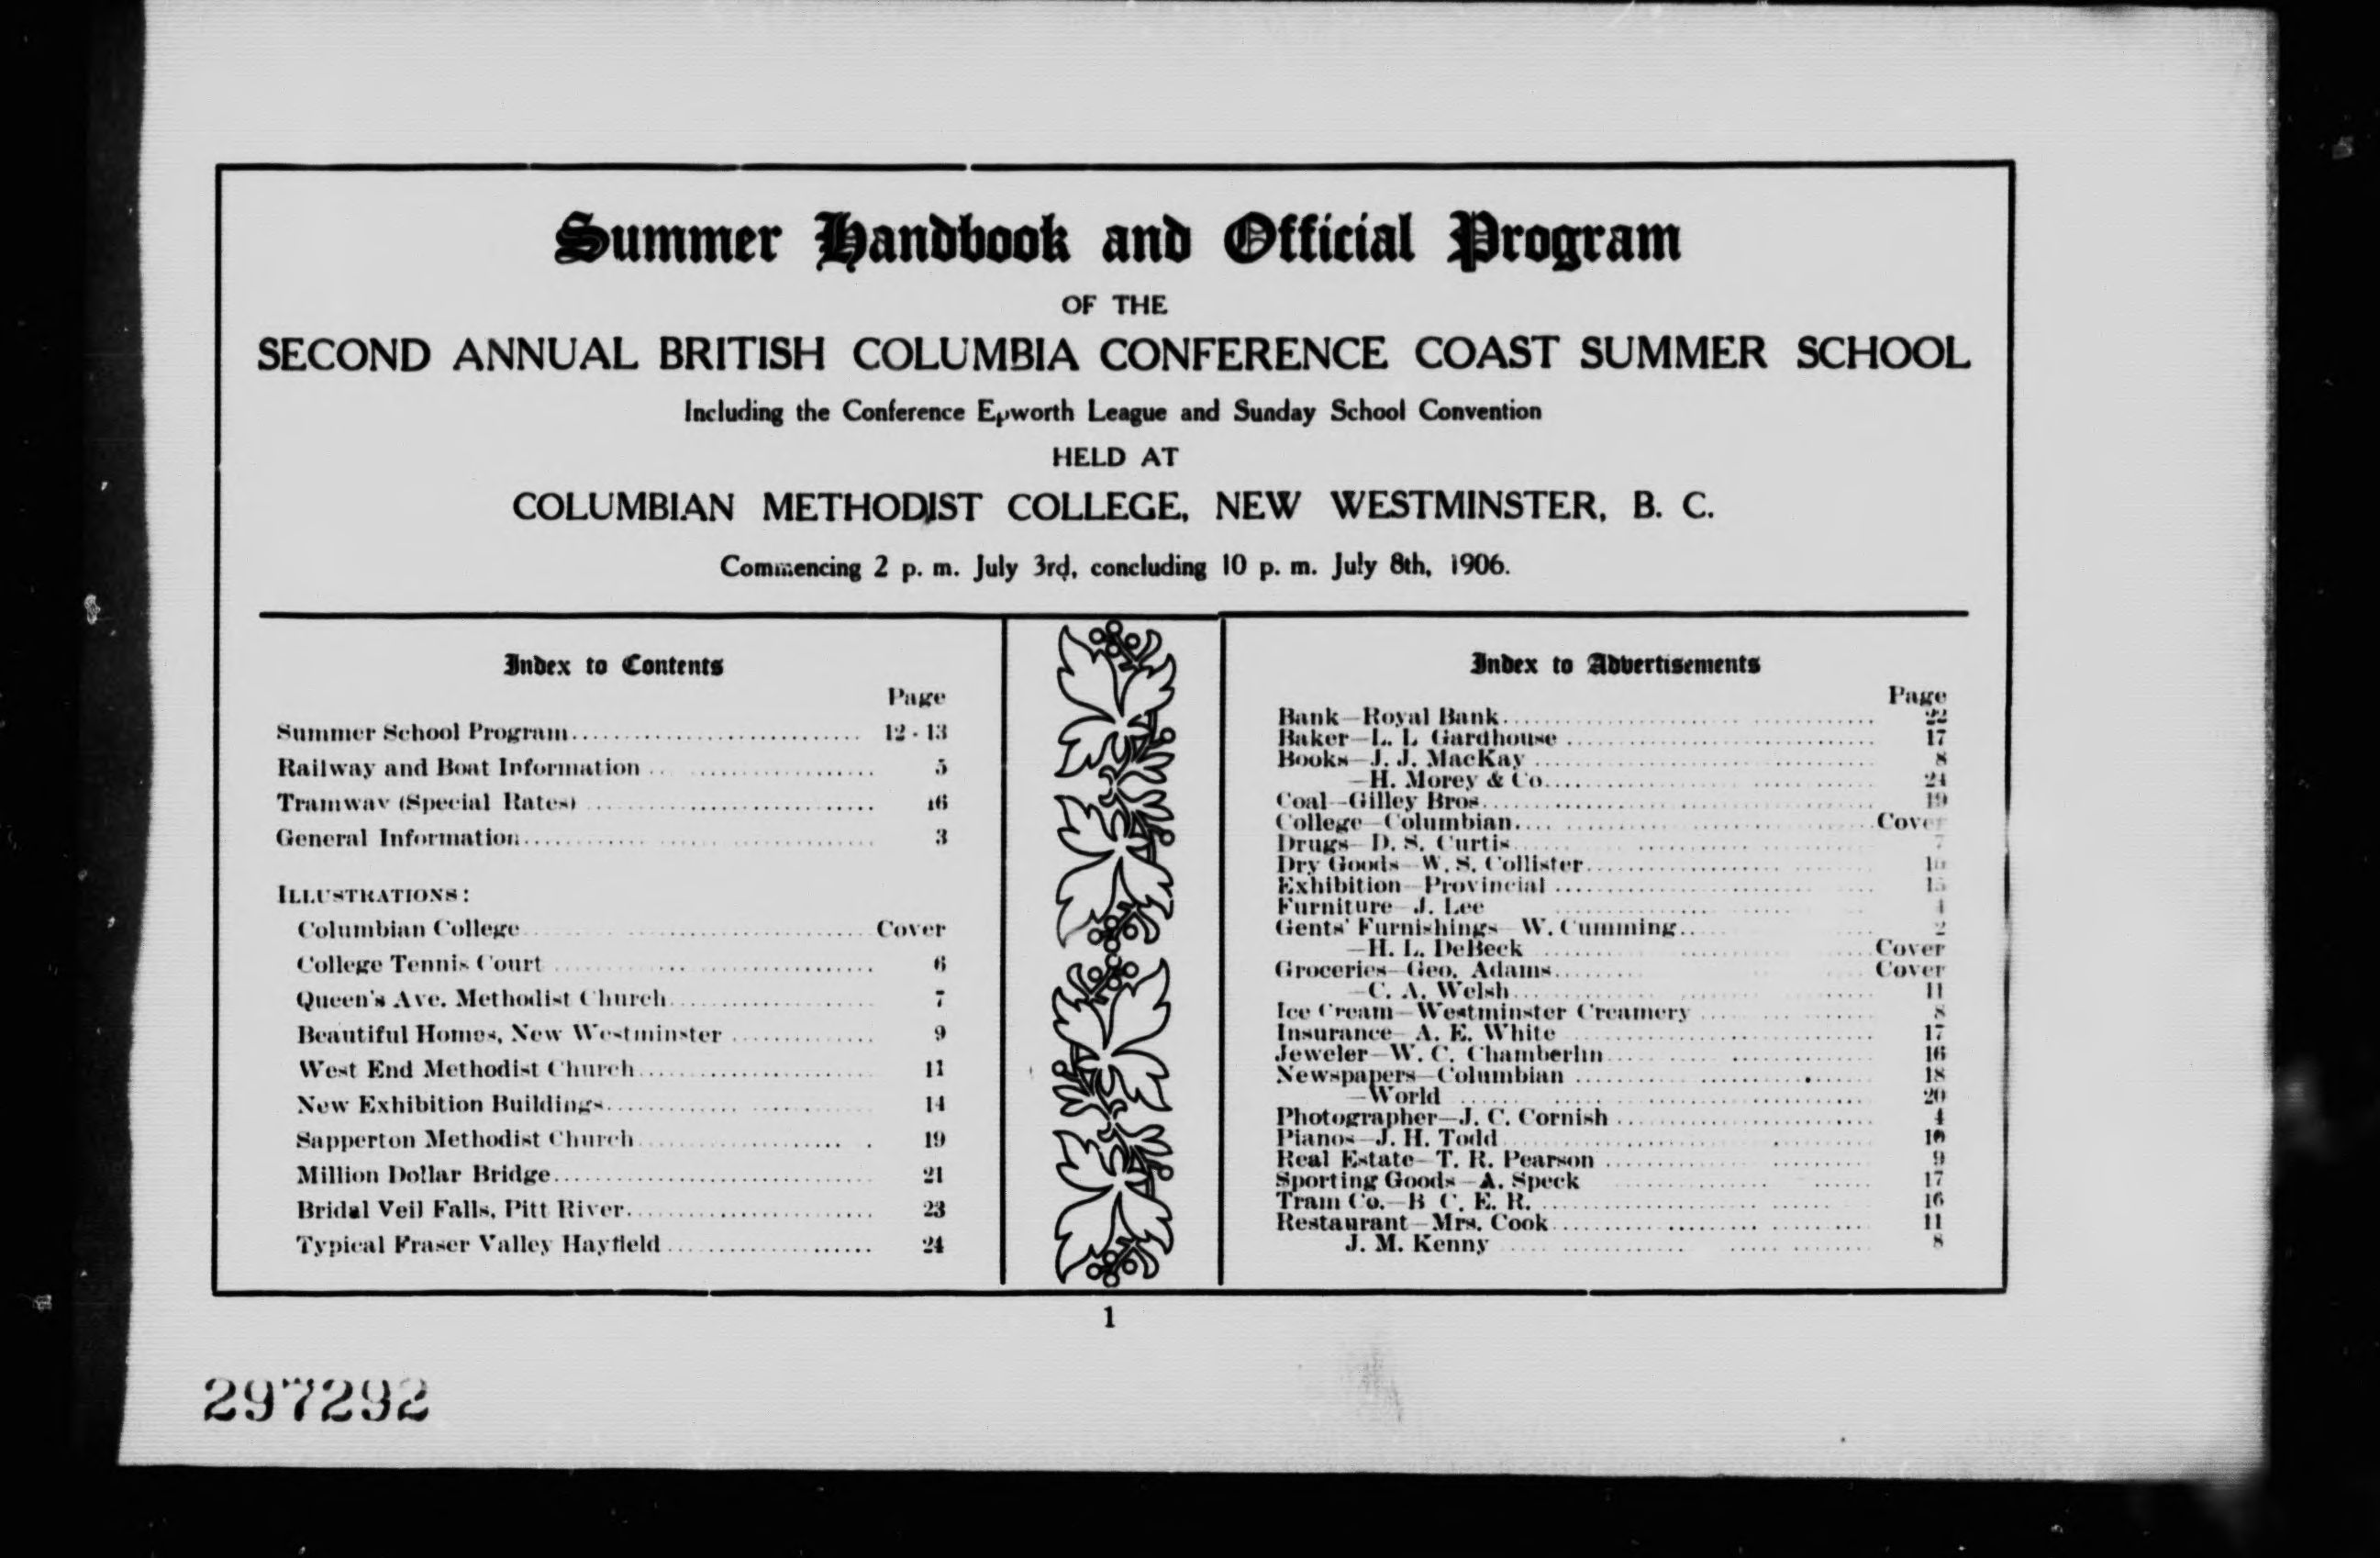 Summer Handbook and Official Program
OF THE
SECOND ANNUAL BRITISH COLUMBIA CONFERENCE COAST SUMMER SCHOOL
Including the Conference Epworth League and Sunday School Convention
HELD AT
COLUMBIAN METHODIST COLLEGE, NEW WESTMINSTER, B. C.
Commencing 2 p. m. July 3rd, concluding 10 p. m. July 8th, 1906.
Index to Contents
Page
Summer School Program 12-13
Railway and Boat Information 5
Tramway (Special Rates) 16
General Information 3
ILLUSTRATIONS:
Columbian College Cover
College Tennis Court 6
Queen's Ave. Methodist Church 7
Beautiful Homes, New Westminster 9
West End Methodist Church 11
New Exhibition Buildings 14
Sapperton Methodist Church 19
Million Dollar Bridge 21
Bridal Veil Falls, Pitt River 23
Typical Fraser Valley Hayfield 24
Index to Advertisements
Page
Bank—Royal Bank 22
Baker—L. L Gardhouse 17
Books—J. J. MacKay 8
—H. Morey & Co. 24
Coal—Gilley Bros. 19
College—Columbian Cover
Drugs—D. S. Curtis 7
Dry Goods—W. S. Collister
Exhibition—Provincial 15
Furniture—J. Lee 4
Gents' Furnishings—W. Cumming 2
—H. L. DeBeck Cover
Groceries—Geo. Adams Cover
—C. A. Welsh 11
Ice Cream—Westminster Creamery 8
Insurance—A. E. White 17
Jeweler—W. C. Chamberlin 16
Newspapers—Columbian 18
—World 20
Photographer—J. C. Cornish 4
Pianos—J. H. Todd 10
Real Estate—T. R. Pearson 9
Sporting Goods—A. Speck 17
Tram Co.—B C. E. R. 16
Restaurant—Mrs. Cook 11
J. M. Kenny 8
1
297292